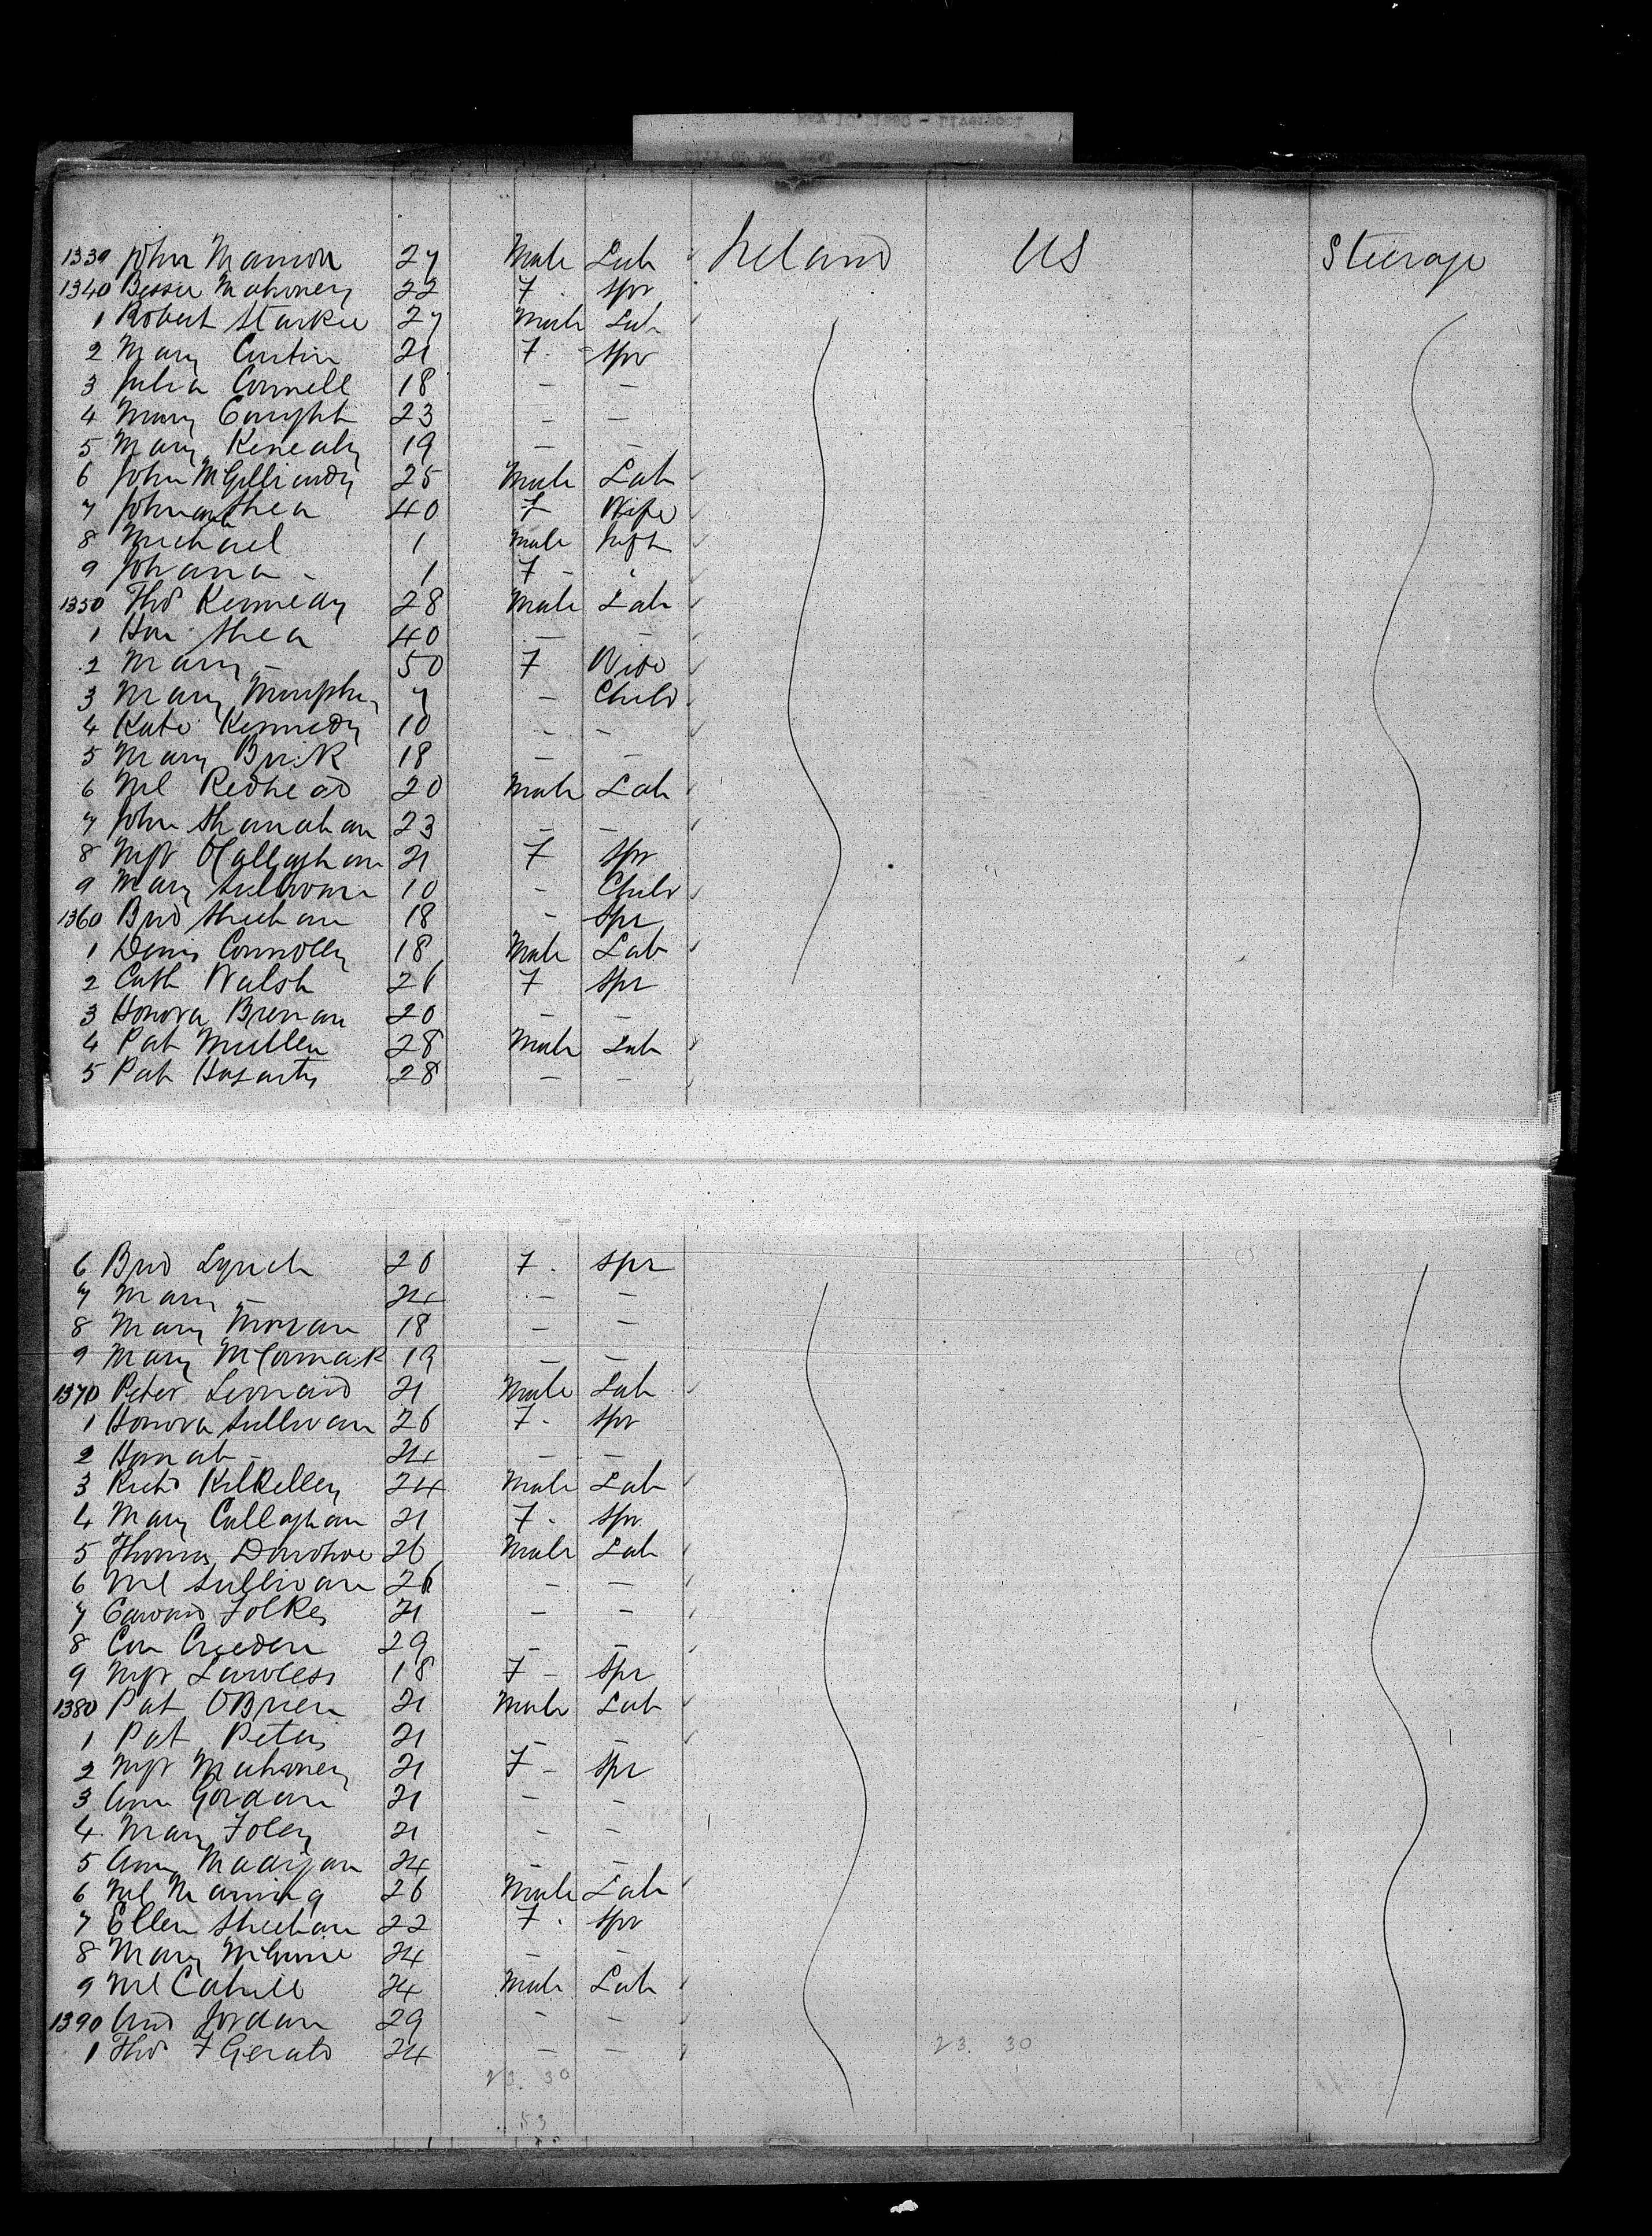 1339 John Mannion 27 Male Lab Ireland US Steerage
1340 Bessie Mahoney 22 F. Spr
1 Robert Starkie 27 Male Lab
2 Mary Curtin 21 F. Spr
3 Julia Connell 18 — —
4 Mary Enright 23 — —
5 Mary Kenealy 19 — —
6 John McGillicuddy 25 Male Lab
7 Johanna Shea 40 F Wife
8 Michael 1 Male Inft
9 Johana - 1 F - "
1350 Thos Kennedy 28 Male Lab
1 Hon Shea 40 — —
2 Mary - 50 F Wife
3 Mary Murphy 7 — Child
4 Kate Kennedy 10 - -
5 Mary Brick 18 — —
6 Ml Redhead 20 Male Lab
7 John Shanahan 23 — —
8 Mgt OCallaghan 21 F Spr
9 Mary Sullivan 10 - Child
1360 Brid Sheehan 18 - Spr
1 Denis Connolly 18 Male Lab
2 Cath Walsh 26 F Spr
3 Honora Brennan 20 — —
4 Pat Mullen 28 Male Lab
5 Pat Hogarty 28 — —
6 Brid Lynch 20 F. Spr
7 Mary - 24 — —
8 Mary Moran 18 — —
9 Mary McCormak 19 — —
1370 Peter Leonard 21 Male Lab
1 Honora Sullivan 26 F. Spr
2 Hanah - 24 — —
3 Richd Kilkelley 24 Male Lab
4 Mary Callaghan 21 F. Spr
5 Thomas Donohoe 26 Male Lab
6 Ml Sullivan 26 — —
7 Edward Folkes 21 — —
8 Con Creeden 29 — —
9 Mgt Lawless 18 F - Spr
1380 Pat OBrien 21 Male Lab
1 Pat Peters 21 — —
2 Mgt Mahoney 21 F - Spr
3 Ann Gordan 21 - -
4 Mary Foley 21 - -
5 Ann Madigan 24 - -
6 Ml Maning 26 Male Lab
7 Ellen Sheehan 22 F. Spr
8 Mary 24 — —
9 Ml Cahill 24 Male Lab
1390 And Jordan 29 - -
1 Thos FGerald 24 — —
23. 30
23. 30
53